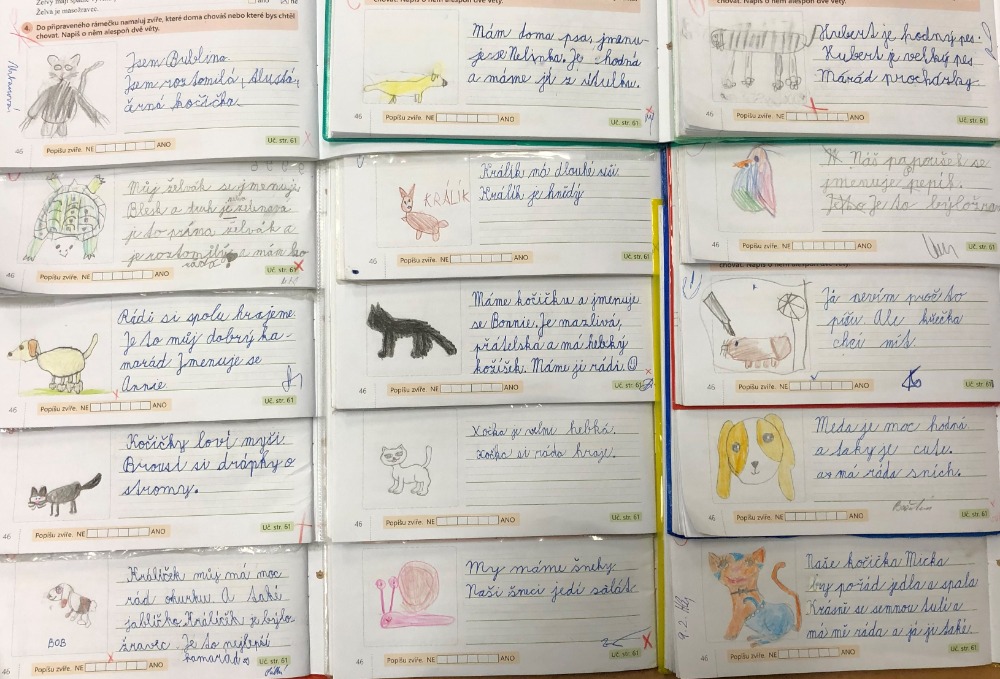 Želva je masožravec.
4. Do připraveného rámečku namaluj zvíře, které doma chováš nebo které bys chtěl
chovat. Napiš o něm alespoň dvě věty.
Jsem Bublina.
Jsem roztomilá, tlustá,
černá kočička.
46
Popíšu zvíře. NE ANO
Uč. str. 61
Mám doma psa, jmenu-
je se Nelinka. Je hodná
a máme ji z útulku.
46
Popíšu zvíře. NE ANO
Uč. str. 61
Hubert je hodný pes.
Hubert je velký pes.
Má rád procházky.
46
Popíšu zvíře. NE ANO
Uč. str. 61
Můj želvák se jmenuje
Blesk a druh je zelenavá
je to príma želvák a
je roztomilý a mám ho
ráda
46
Popíšu zvíře. NE ANO
Uč. str. 61
KRÁLÍK
Králík má dlouhé uši.
Králík je hnědý
46
Popíšu zvíře. NE ANO
Uč. str. 61
Náš papoušek se
jmenuje pepík.
Je to býložravec
46
Popíšu zvíře. NE ANO
Uč. str. 61
Rádi si spolu hrajeme.
Je to můj dobrý ka-
marád. Jmenuje se
Annie.
46
Popíšu zvíře. NE ANO
Uč. str. 61
Máme kočičku a jmenuje
se Bonnie. Je mazlivá,
přátelská a má hebký
kožíšek. Máme ji rádi.
46
Popíšu zvíře. NE ANO
Uč. str. 61
chovat. Napiš o něm alespoň dvě věty.
Já nevím proč to
píšu. Ale křečka
chci mít.
46
Popíšu zvíře. NE ANO
Uč. str. 61
Kočičky loví myši.
Brousí si drápky o
stromy.
46
Popíšu zvíře. NE ANO
Uč. str. 61
Kočka je velmi hebká.
Kočka si ráda hraje.
46
Popíšu zvíře. NE ANO
Uč. str. 61
Meda je moc hodná
a taky je cute.
a má ráda sních.
46
Popíšu zvíře. NE ANO
Uč. str. 61
BOB
Králíček můj má moc
rád okurku. A také
jablíčko. Králíček je býlo-
žravec. Je to nejlepší
kamarád
46
Popíšu zvíře. NE ANO
Uč. str. 61
My máme šneky
Naši šneci jedí salát
46
Popíšu zvíře. NE ANO
Uč. str. 61
Naše kočička Micka
by pořád jedla a spala
Krásně se semnou tulí a
má mě ráda a já ji také.
9.2.
46
Popíšu zvíře. NE ANO
Uč. str. 61